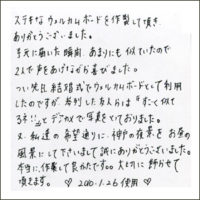 ステキなウェルカムボードを作製して頂き
ありがとうございました。
手元に届いた瞬間、あまりにも似ていたので
2人で声をあげながら喜びました。
つい先日、結婚式でウェルカムボードとして利用
したのですが、参列した友人らは「すごく似て
る!!」とデジカメで写真をとっておりました。
又、私達の希望通りに神戸の夜景をお昼の
風景にして下さいまして誠にありがとうございました。
本当に、作製して良かったです。大切に飾らせて
頂きます。 ♡ 2010.1.26 使用 ♡